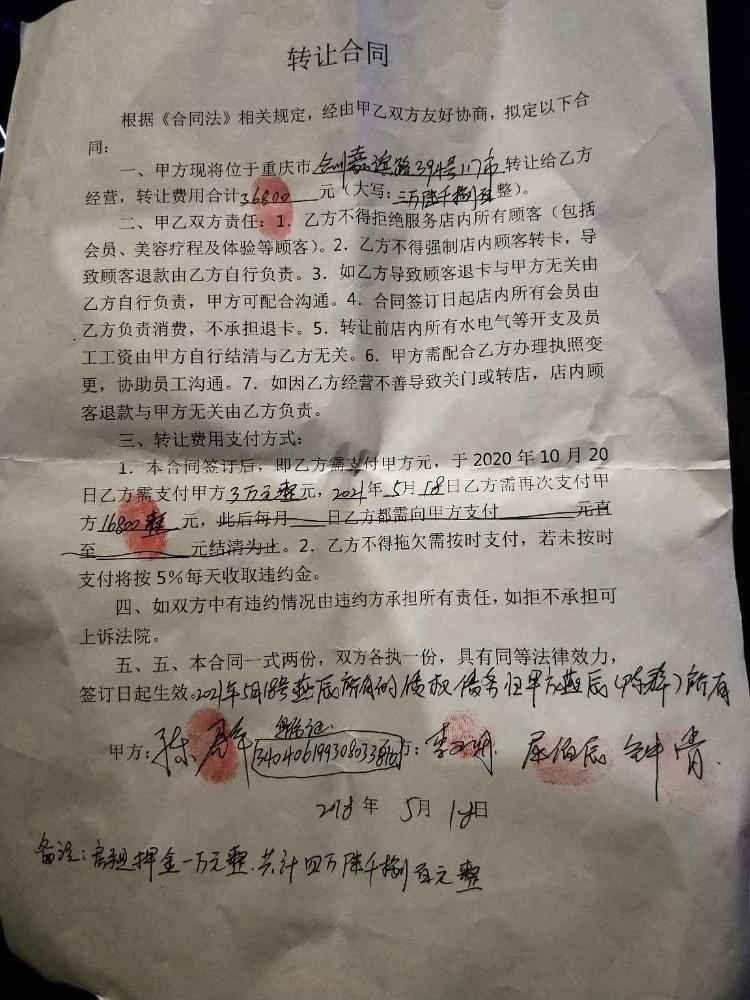 转让合同
根据《合同法》相关规定，经由甲乙双方友好协商，拟定以下合
同：
一、甲方现将位于重庆市 路394号 门市 转让给乙方
经营，转让费用合计36800元（大写：三万陆千捌百整）。
二、甲乙双方责任：1．乙方不得拒绝服务店内所有顾客（包括
会员、美容疗程及体验等顾客）。2．乙方不得强制店内顾客转卡，导
致顾客退款由乙方自行负责。3．如乙方导致顾客退卡与甲方无关由
乙方自行负责，甲方可配合沟通。4．合同签订日起店内所有会员由
乙方负责消费，不承担退卡。5．转让前店内所有水电气等开支及员
工工资由甲方自行结清与乙方无关。6．甲方需配合乙方办理执照变
更，协助员工沟通。7．如因乙方经营不善导致关门或转店，店内顾
客退款与甲方无关由乙方负责。
三、转让费用支付方式：
1．本合同签订后，即乙方需支付甲方元，于2020年10月20
日乙方需支付甲方3万元整元，2021年5月18日乙方需再次支付甲
方16800整元，此后每月 日乙方都需向甲方支付 元直
至 元结清为止。2．乙方不得拖欠需按时支付，若未按时
支付将按5%每天收取违约金。
四、如双方中有违约情况由违约方承担所有责任，如拒不承担可
上诉法院。
五、五、本合同一式两份，双方各执一份，具有同等法律效力，
签订日起生效。2021年5月18号 所有的债权债务归甲方 所有
甲方：陈 身份证： 方：李 屈伯辰 钟青
年 5月18日
备注：房租押金一万元整.共计四万陆千捌百元整